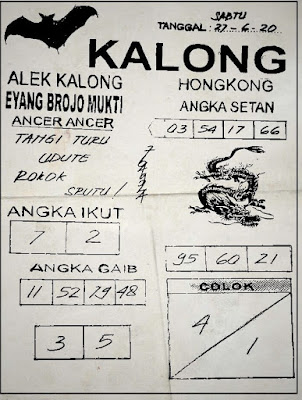 SABTU
TANGGAL: 27-6-20
KALONG
ALEK KALONG
EYANG BROJO MUKTI
HONGKONG
ANGKA SETAN
03 54 17 66
ANCER ANCER
TANGI TURU
UDUTE
ROKOK
SPUTU!
ANGKA IKUT
7 2
ANGKA GAIB
11 52 79 48
3 5
95 60 21
COLOK
4
1